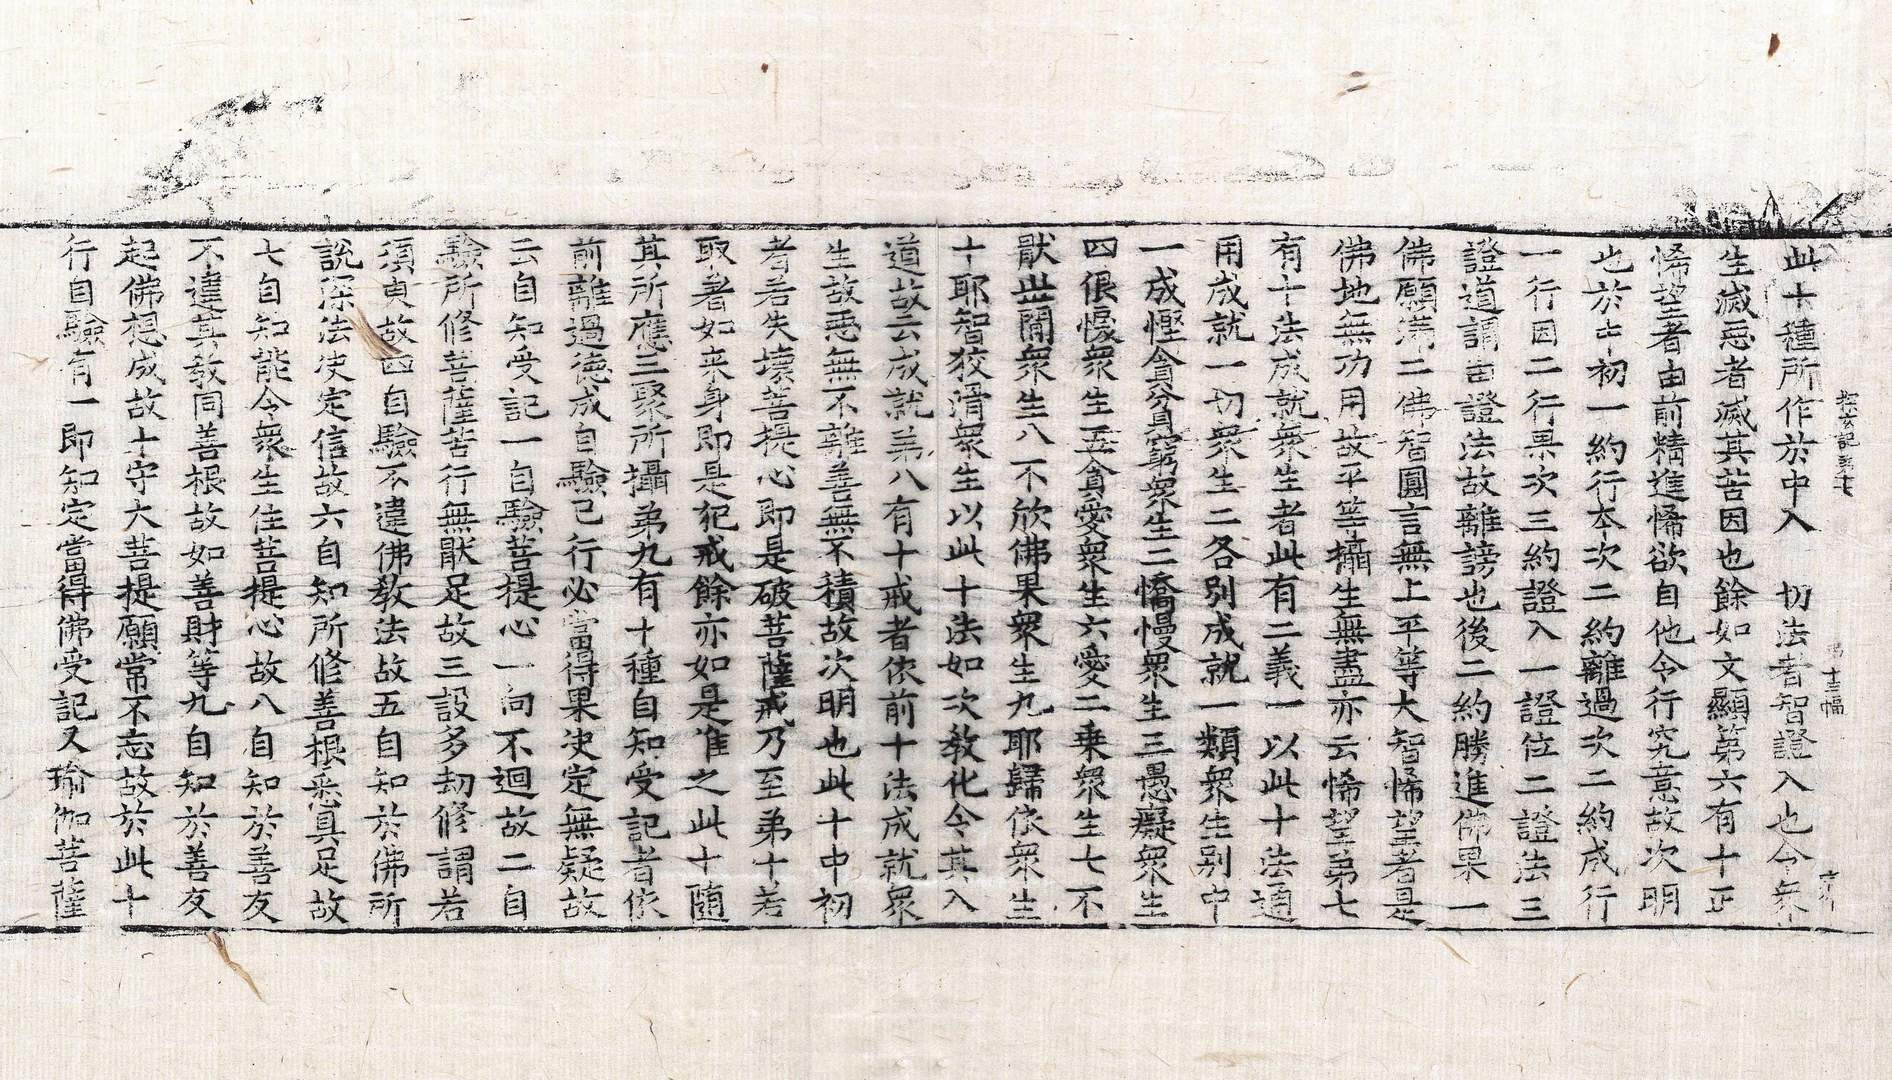 此十種所作於中入 切法者智證入也令衆
生滅惡者滅其苦因也餘如文顯第六有十正
悕望者由前精進悕欲自他令行究意故次明
也於中初一約行本次二約離過次二約成行
一行因二行果次三約證入一證位二證法三
證道謂由證法故離謗也後二約勝進佛果一
佛願滿二佛智圓言無上平等大智悕望者是
佛地無功用故平等攝生無盡亦云悕望第七
有十法成就衆生者此有二義一以此十法通
用成就一切衆生二各別成就一類衆生別中
一成慳貪貧窮衆生二憍慢衆生三愚癡衆生
四佷悷衆生五貪愛衆生六愛二乗衆生七不
猒世閙衆生八不欣佛果衆生九耶歸依衆生
十耶智狡滑衆生以此十法如次教化令其入
道故云成就弟八有十戒者依前十法成就衆
生故惡無不離善無不積故次明也此十中初
者若失壞菩提心即是破菩薩戒乃至弟十若
取著如来身即是犯戒餘亦如是准之此十隨
其所應三聚所攝弟九有十種自知受記者依
前離過德成自驗己行必當得果決定無疑故
云自知受記一自驗菩提心一向不迴故二自
驗所修菩薩苦行無猒足故三設多劫修謂若
須臾故四自驗不違佛教法故五自知於佛所
說深法決定信故六自知所修善根悉具足故
七自知能令衆生住菩提心故八自知於善友
不違其教同善根故如善財等九自知於善友
起佛想成故十守大菩提願常不忘故於此十
行自驗有一即知定當得佛受記又瑜伽菩薩
十三幅